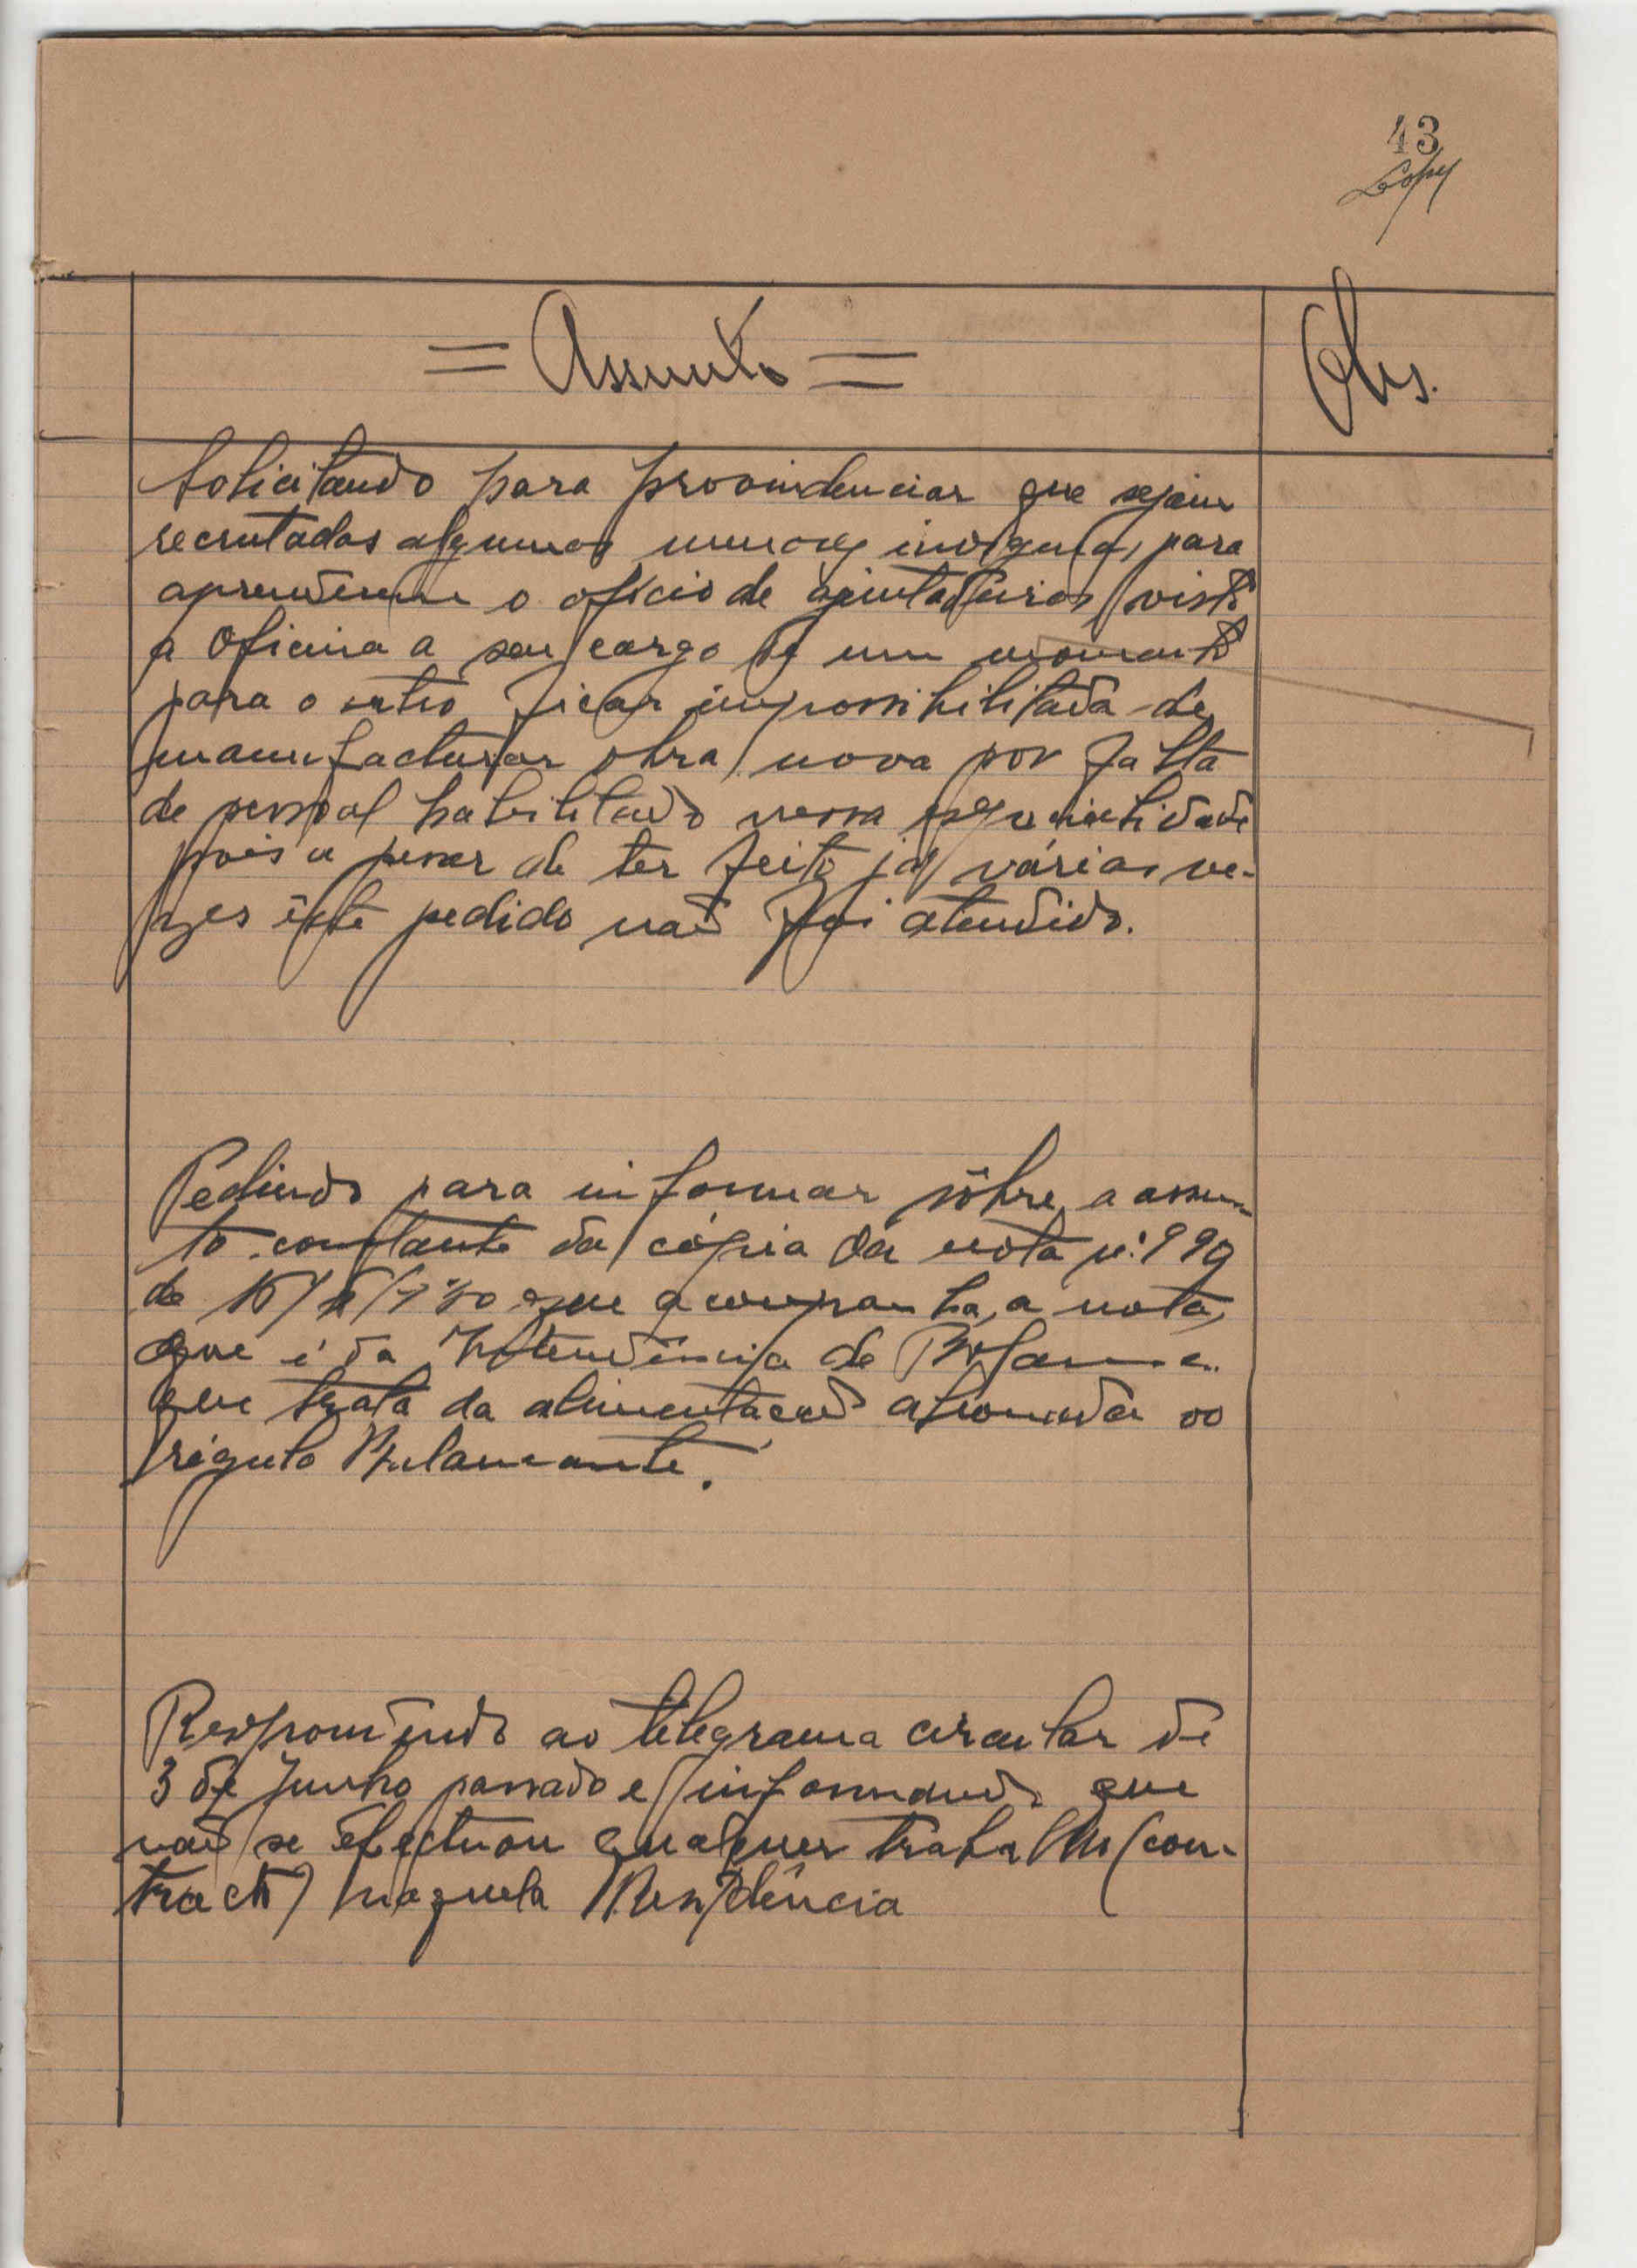 43
= Assunto =
Obs.
Solicitando para provindenciar que sejam
recrutados algumos menores indigenas, para
aprenderem o ofício de ajuntadeiras, visto
a Oficina a seu cargo de um momento
para o outro ficar impossibilitada de
manufacturar obra nova por falta
de pessoal habilitado nessa especialidade
pois a pesar de ter feito já várias ve-
zes êste pedido não foi atendido.
Pedindo para informar sôbre a assun-
to constante da cópia da nota nº 999
de que acompanha, a nota,
que é da Intendência de
que trata da alimentação abonada ao
régulo
Respondendo ao telegrama circular de
3 de Junho passado e informando que
não se efectuou qualquer trabalho (con-
tracto) naquela Residência